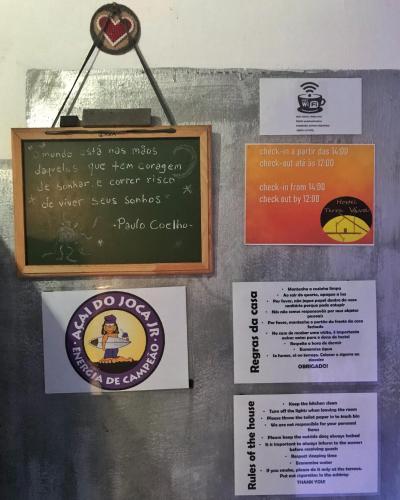 O mundo está nas mãos
daqueles que tem coragem
de sonhar e correr risco
de viver seus sonhos
- Paulo Coelho -
WiFi
check-in a partir das 14:00
check-out até às 12:00
check-in from 14:00
check out by 12:00
HOSTEL
TERRA
AÇAI DO JOCA JR.
ENERGIA DE CAMPEÃO
Regras da casa
• Mantenha a cozinha limpa
• Ao sair do quarto, apague a luz
• Por favor, não jogue papel dentro do vaso
sanitário porque pode entupir
• Nós não somos responsáveis por seus objetos
pessoais
• Por favor, mantenha a portão da frente da casa
fechado
• No caso de receber uma visita, é importante
avisar antes para o dono do hostel
• Respeite a hora de dormir
• Economize água
• Se fumar, só no terraço. Colocar o cigarro no
cinzeiro
OBRIGADO!
Rules of the house
• Keep the kitchen clean
• Turn off the lights when leaving the room
• Please throw the toilet paper in te trash bin
• We are not responsible for your personal
items
• Please keep the outside door always locked
• It is important to always inform to the owner
before receiving guests
• Respect sleeping time
• Economize water
• If you smoke, please do it only at the terrace.
Put out cigarettes in the ashtray
THANK YOU!